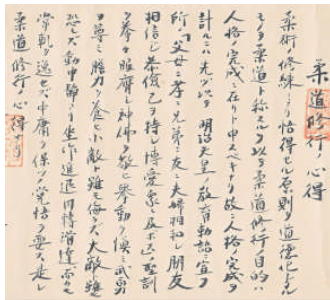 柔道修行ノ心得
柔術ノ修練ニヨリ悟得セル原則ヲ道徳化シタル
モノヲ柔道ト称スルヲ以テ柔道修行ノ目的ハ
人格ノ完成ニ在リト申スベキナリ故ニ人格ノ完成ヲ
計ルニハ先ツ以テ明治天皇ノ教育勅語ニ宣フ
所ノ父母ニ孝ニ兄弟ニ友ニ夫婦相和シ朋友
相信シ恭儉己ヲ持シ博愛衆ニ及ホスノ聖訓
ヲ拳々服膺シ神佛ヲ敬ヒ挙動ヲ慎ミ武勇
ヲ尊ミ膽力ヲ養ヒ小敵ト雖モ侮ラズ大敵雖
恐レズ動中静ニ坐作進退
常軌ヲ逸セズ中庸ヲ保ツノ覚悟ヲ要ス是レ
柔道修行ノ心得ナリ